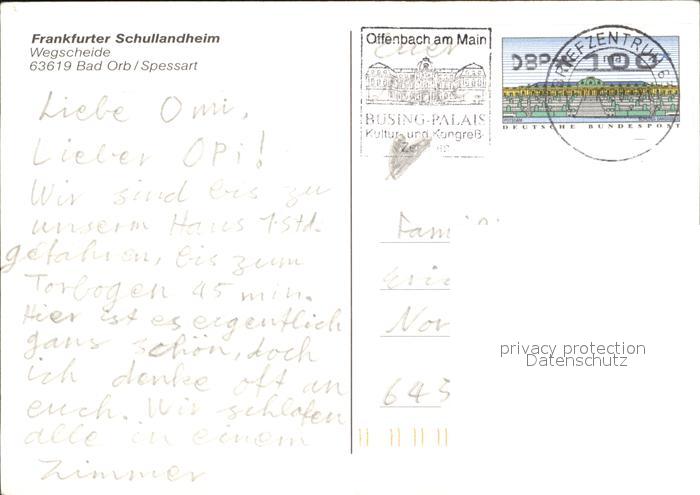 Frankfurter Schullandheim
Wegscheide
63619 Bad Orb / Spessart
Liebe Omi,
Lieber OPi!
Wir sind bis zu
unserm Haus 1 std.
gefahren, bis zum
Torbogen 45 min.
Hier ist es eigentlich
gans schön, doch
ich denke oft an
euch. Wir schlafen
alle in einem
Zimmer
Euer
Offenbach am Main
BÜSING-PALAIS
Kultur- und Kongreß-
DBP
100
BRIEFZENTRUM 63
DEUTSCHE BUNDESPOST
Fami
Nor
645
privacy protection
Datenschutz